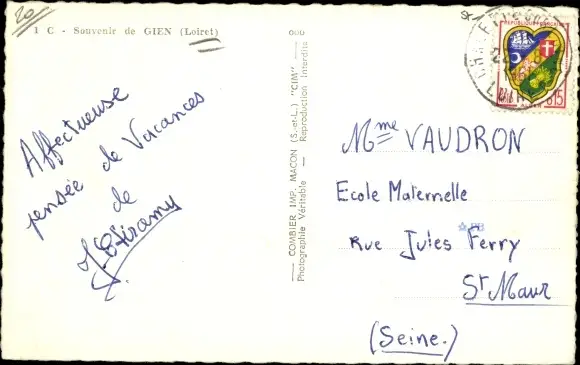 20
1 C - Souvenir de GIEN (Loiret)
Affectueuse
pensée de Vacances
de
COMBIER IMP. MACON (S.-et-L.) "CIM"
Photographie Véritable - Reproduction Interdite
REPUBLIQUE FRANÇAISE
0,15
Mme VAUDRON
Ecole Maternelle
Rue Jules Ferry
St Maur
(Seine.)